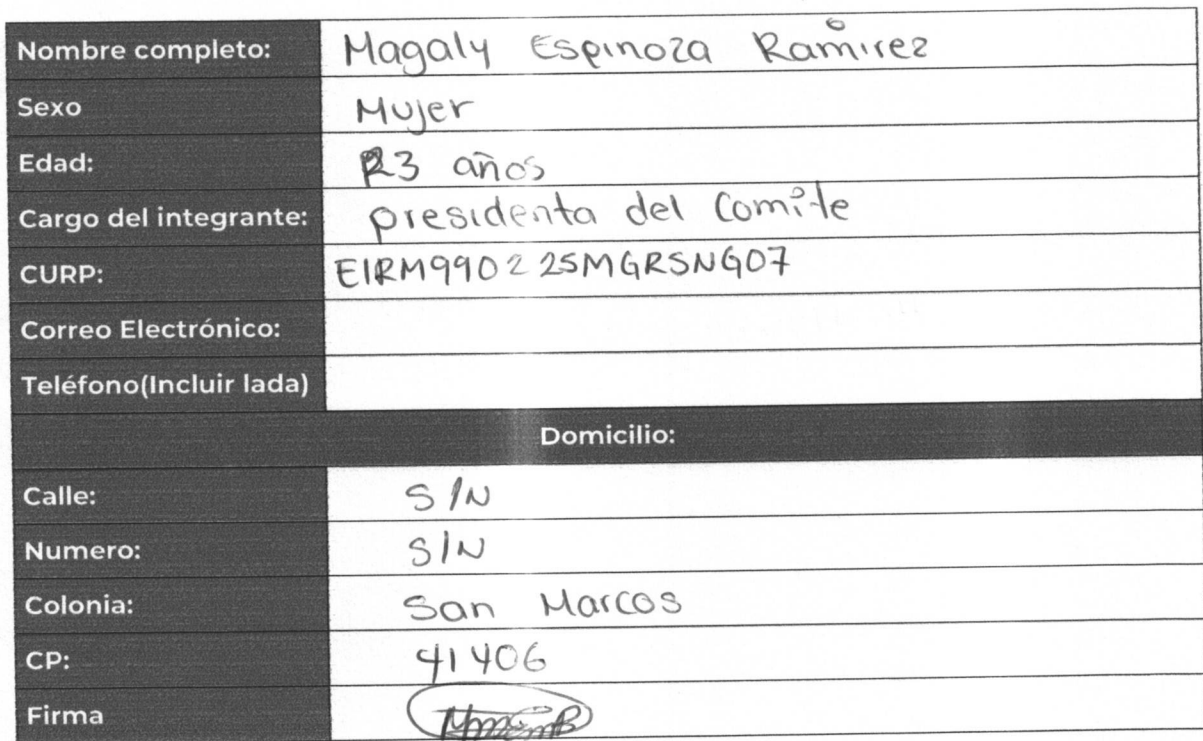 Nombre completo: Magaly Espinoza Ramirez
Sexo Mujer
Edad: 23 años
Cargo del integrante: presidenta del Comite
CURP: EIRM990225MGRSNG07
Correo Electrónico:
Teléfono(Incluir lada)
Domicilio:
Calle: S/N
Numero: S/N
Colonia: San Marcos
CP: 41406
Firma